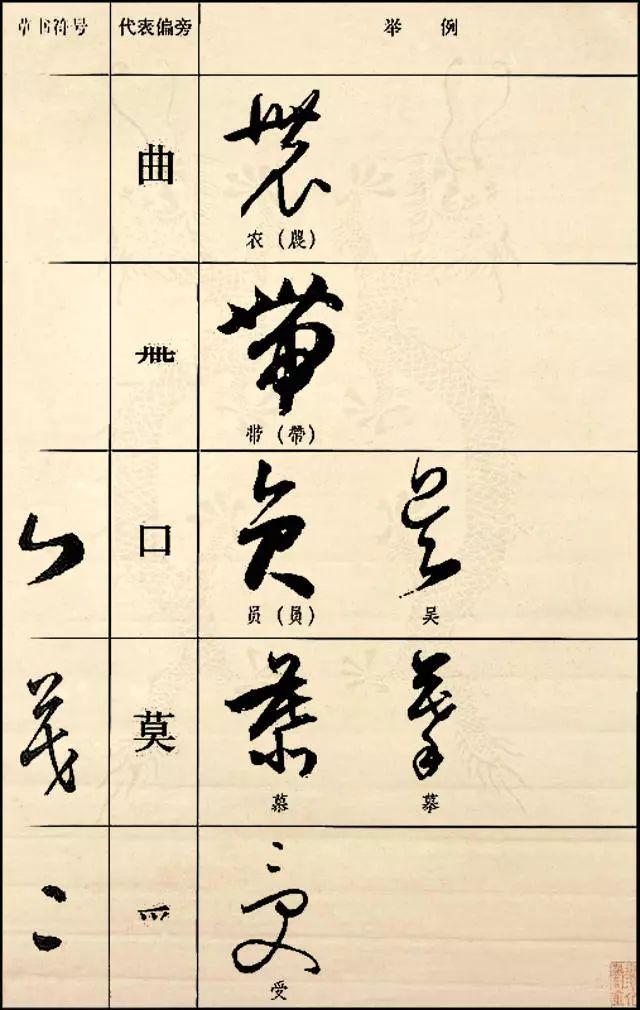 草书符号 代表偏旁 举例
曲
农（農）
卌
带（帶）
口
员（員） 吴
莫
慕 摹
爫
受